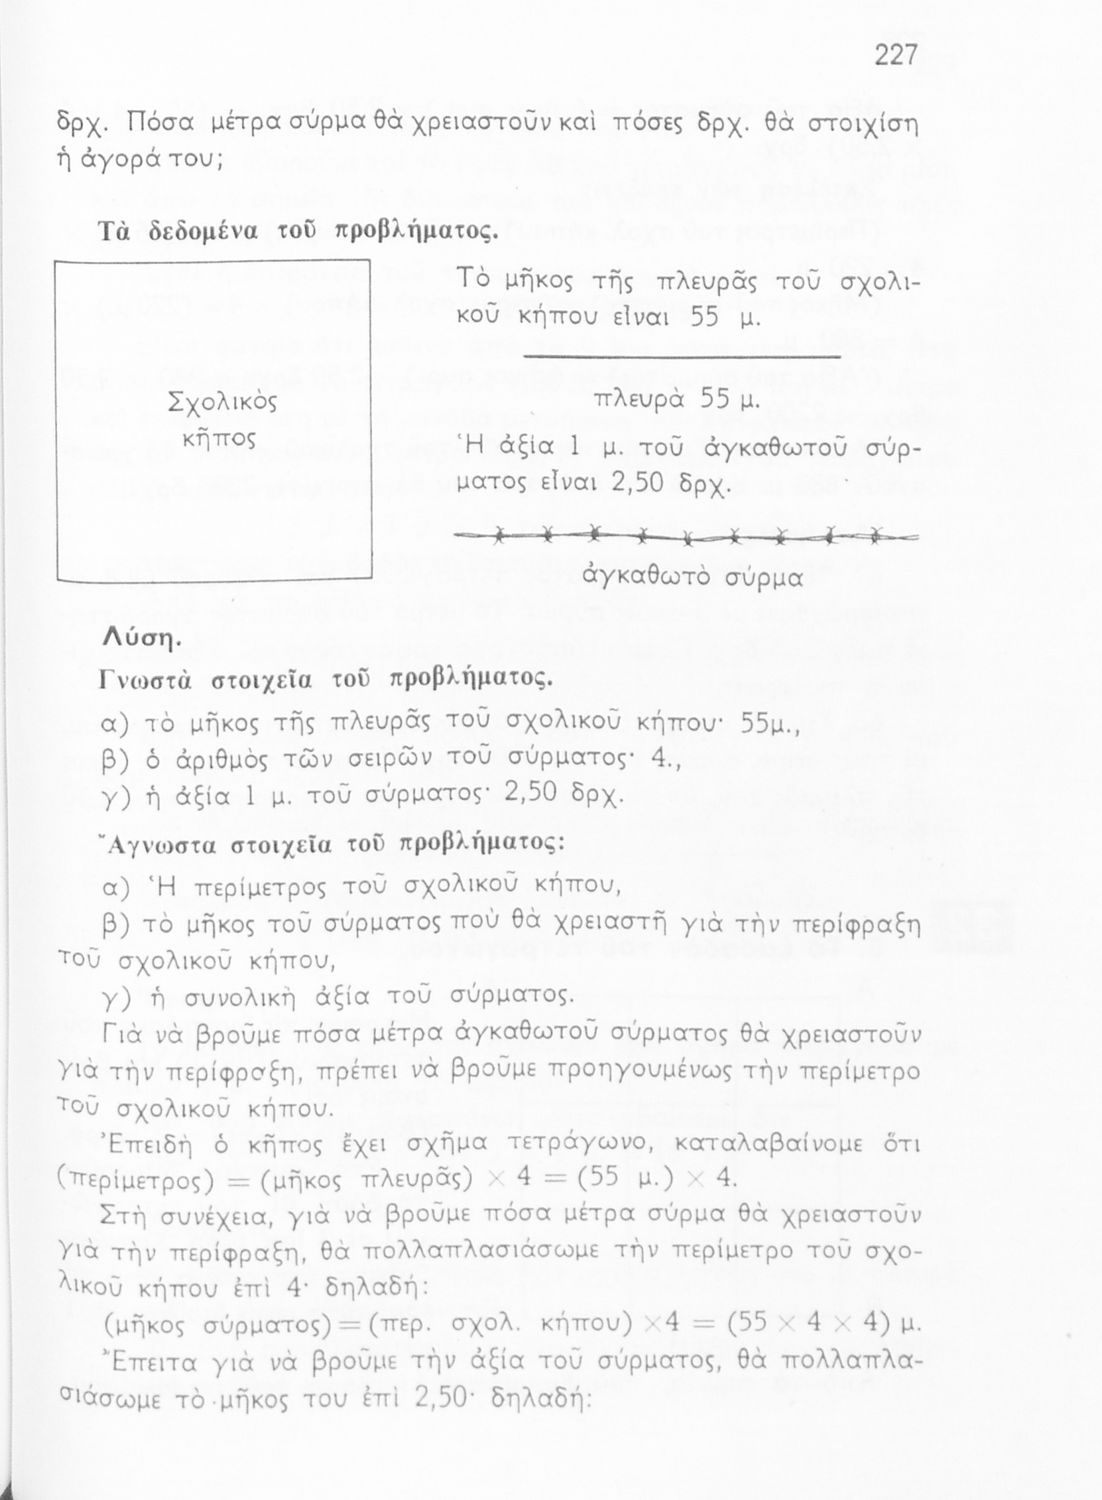 227
δρχ. Πόσα μέτρα σύρμα θὰ χρειαστοῦν καὶ πόσες δρχ. θὰ στοιχίση
ἡ ἀγορά του;
Τὰ δεδομένα τοῦ προβλήματος.
Σχολικὸς
κῆπος
Τὸ μῆκος τῆς πλευρᾶς τοῦ σχολι-
κοῦ κήπου εἶναι 55 μ.
πλευρὰ 55 μ.
Ἡ ἀξία 1 μ. τοῦ ἀγκαθωτοῦ σύρ-
ματος εἶναι 2,50 δρχ.
ἀγκαθωτὸ σύρμα
Λύση.
Γνωστὰ στοιχεῖα τοῦ προβλήματος.
α) τὸ μῆκος τῆς πλευρᾶς τοῦ σχολικοῦ κήπου· 55μ.,
β) ὁ ἀριθμὸς τῶν σειρῶν τοῦ σύρματος· 4.,
γ) ἡ ἀξία 1 μ. τοῦ σύρματος· 2,50 δρχ.
Ἄγνωστα στοιχεῖα τοῦ προβλήματος:
α) Ἡ περίμετρος τοῦ σχολικοῦ κήπου,
β) τὸ μῆκος τοῦ σύρματος ποὺ θὰ χρειαστῆ γιὰ τὴν περίφραξη
τοῦ σχολικοῦ κήπου,
γ) ἡ συνολικὴ ἀξία τοῦ σύρματος.
Γιὰ νὰ βροῦμε πόσα μέτρα ἀγκαθωτοῦ σύρματος θὰ χρειαστοῦν
γιὰ τὴν περίφραξη, πρέπει νὰ βροῦμε προηγουμένως τὴν περίμετρο
τοῦ σχολικοῦ κήπου.
Ἐπειδὴ ὁ κῆπος ἔχει σχῆμα τετράγωνο, καταλαβαίνομε ὅτι
(περίμετρος) = (μῆκος πλευρᾶς) × 4 = (55 μ.) × 4.
Στὴ συνέχεια, γιὰ νὰ βροῦμε πόσα μέτρα σύρμα θὰ χρειαστοῦν
γιὰ τὴν περίφραξη, θὰ πολλαπλασιάσωμε τὴν περίμετρο τοῦ σχο-
λικοῦ κήπου ἐπὶ 4· δηλαδή:
(μῆκος σύρματος) = (περ. σχολ. κήπου) ×4 = (55 × 4 × 4) μ.
Ἔπειτα γιὰ νὰ βροῦμε τὴν ἀξία τοῦ σύρματος, θὰ πολλαπλα-
σιάσωμε τὸ μῆκος του ἐπὶ 2,50· δηλαδή: